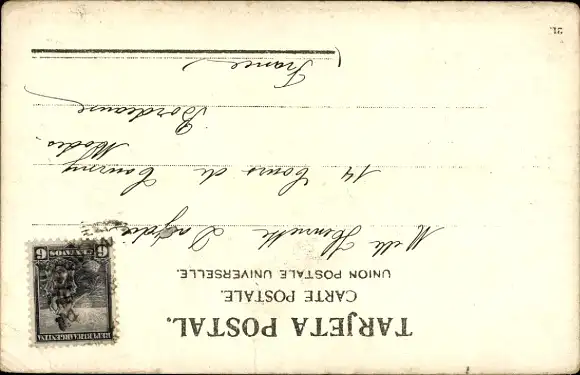 TARJETA POSTAL.
CARTE POSTALE.
UNION POSTALE UNIVERSELLE.
REPUBLICA ARGENTINA
6 CENTAVOS 6
Melle Henriette
14 Cours de Tourny
Modes.
Bordeaux
France
21.